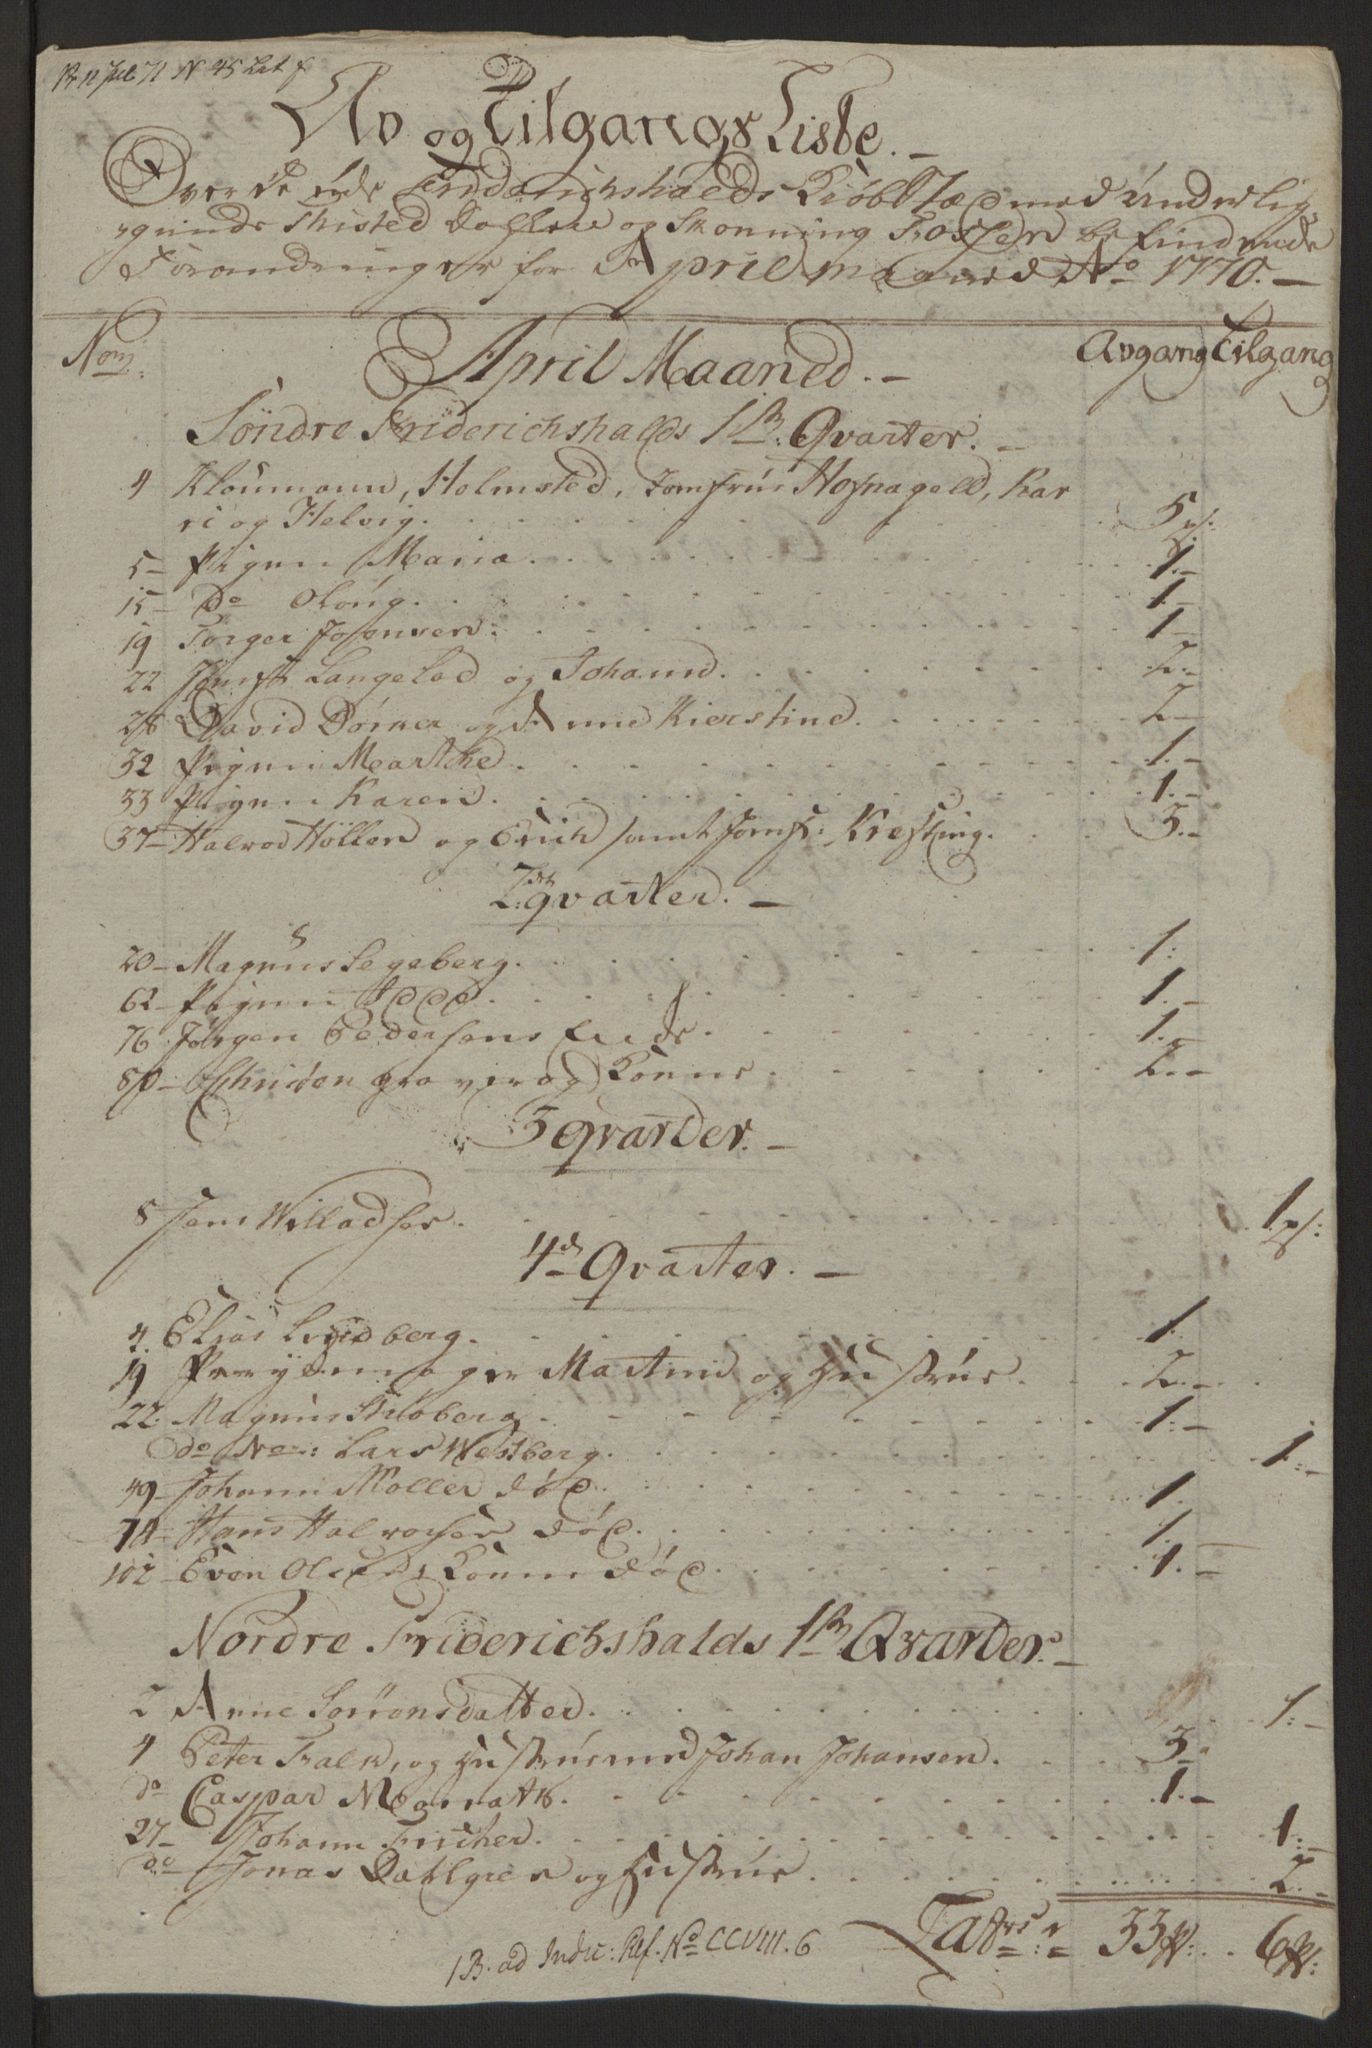 N 45 Lit f
Av og Tilgangs Liste.
Over de inde Friderichshalds Kiøbstæd med Underlig
gende Thisted Dallene og Skonning Fossen befindende
Forandringer for April maaned Ao 1770.
Nom: April Maaned. Avgang Tilgang
Söndre Friderichshalds 1ste Qvarter.
4 Kloumann, Holmsted, Jomfrue Hofnageld, Kar
ri og Helvig. 5 ps:
5 Pigen Maria. 1.
15 Do Oloug. 1.
19 Torger Joensen. 1
22 Jomfr Langelad og Johanne. 2.
28 David Dörner og Anne Kierstine. 2
32 Pigen Marthe. 1.
33 Pigen Karen. 1.
37 Halvor Höllen og Erich samt Jomfr: Kresting. 3.
2den qvarter.
20 Magnus Segeberg. 1.
62 Pigen 1.
76 Jörgen Pedersens Enke. 1.
80 graver og Konne. 2.
3 qvarter.
8 Jens Willadsen. 1 ps:
4de Qvarter.
4. Elias Lindberg. 1.
19 Perqvemager Martini og Hustrue. 2.
22. Magnus Skioberg. 1.
do No: Lars Westberg. 1.
49 Johann Møller död. 1.
74 Hans Halvorsen död. 1.
102 Even Olsens Konne död. 1.
Nordre Friderichshalds 1ste Qvarter.
2 Anne Sörrensdatter. 1.
4 Peter Falk, og Hustrue med Johan Johansen. 3
do Caspar 1.
27 Johann Fischer. 1.
do Jonas Dahlgren og Hustrue. 2.
Latus 33 ps: 6 ps:
1 B. ad Indic: Ref. No CCVIII. 6